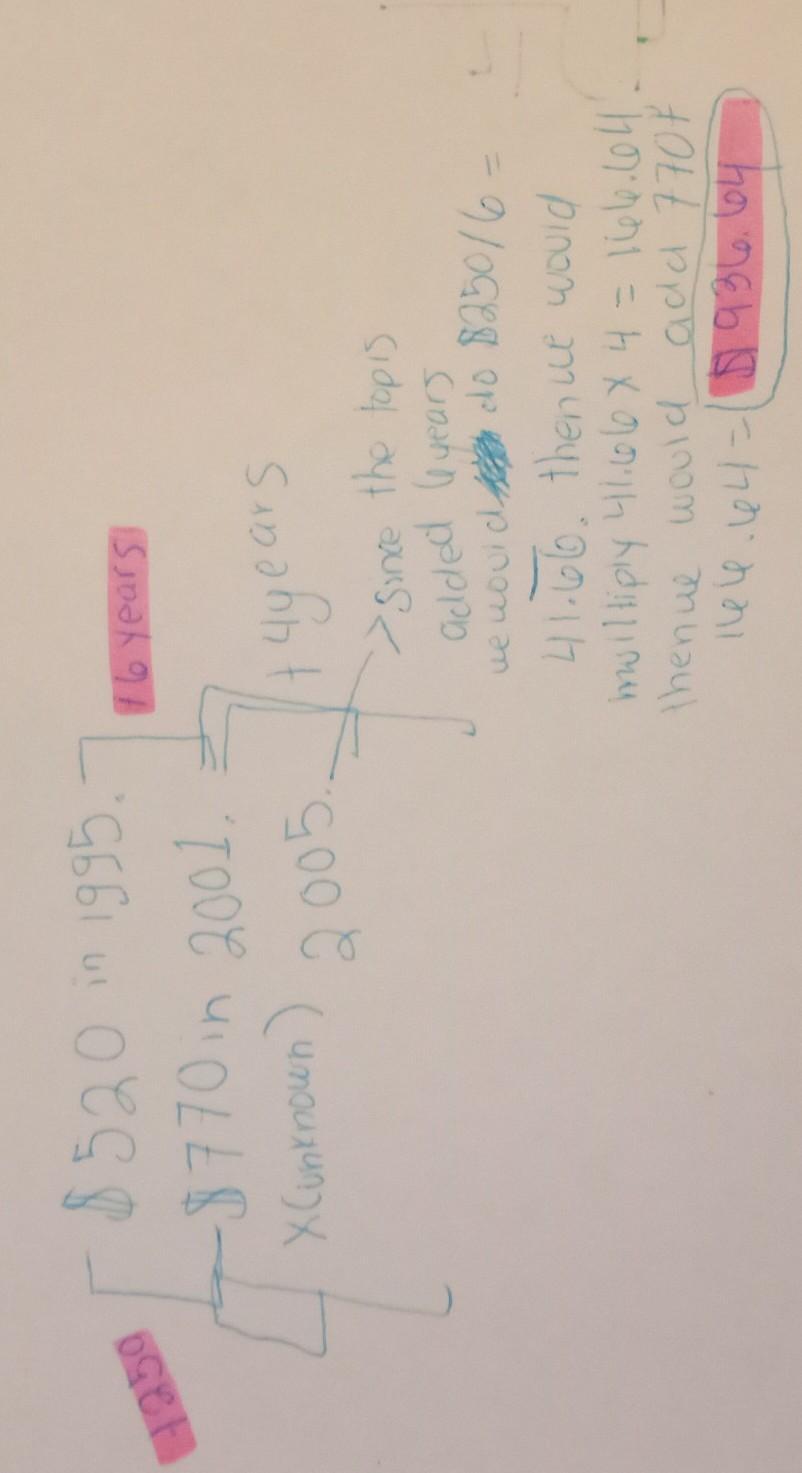 +250
$520 in 1995.
+6 years
$770 in 2001.
+ 4years
x(unknown) 2005.
> Since the top is
added 6 years
we would do $250/6 =
41.66. then we would
multiply 41.66 x 4 = 166.64
then we would add 770+
166.64 = $936.64